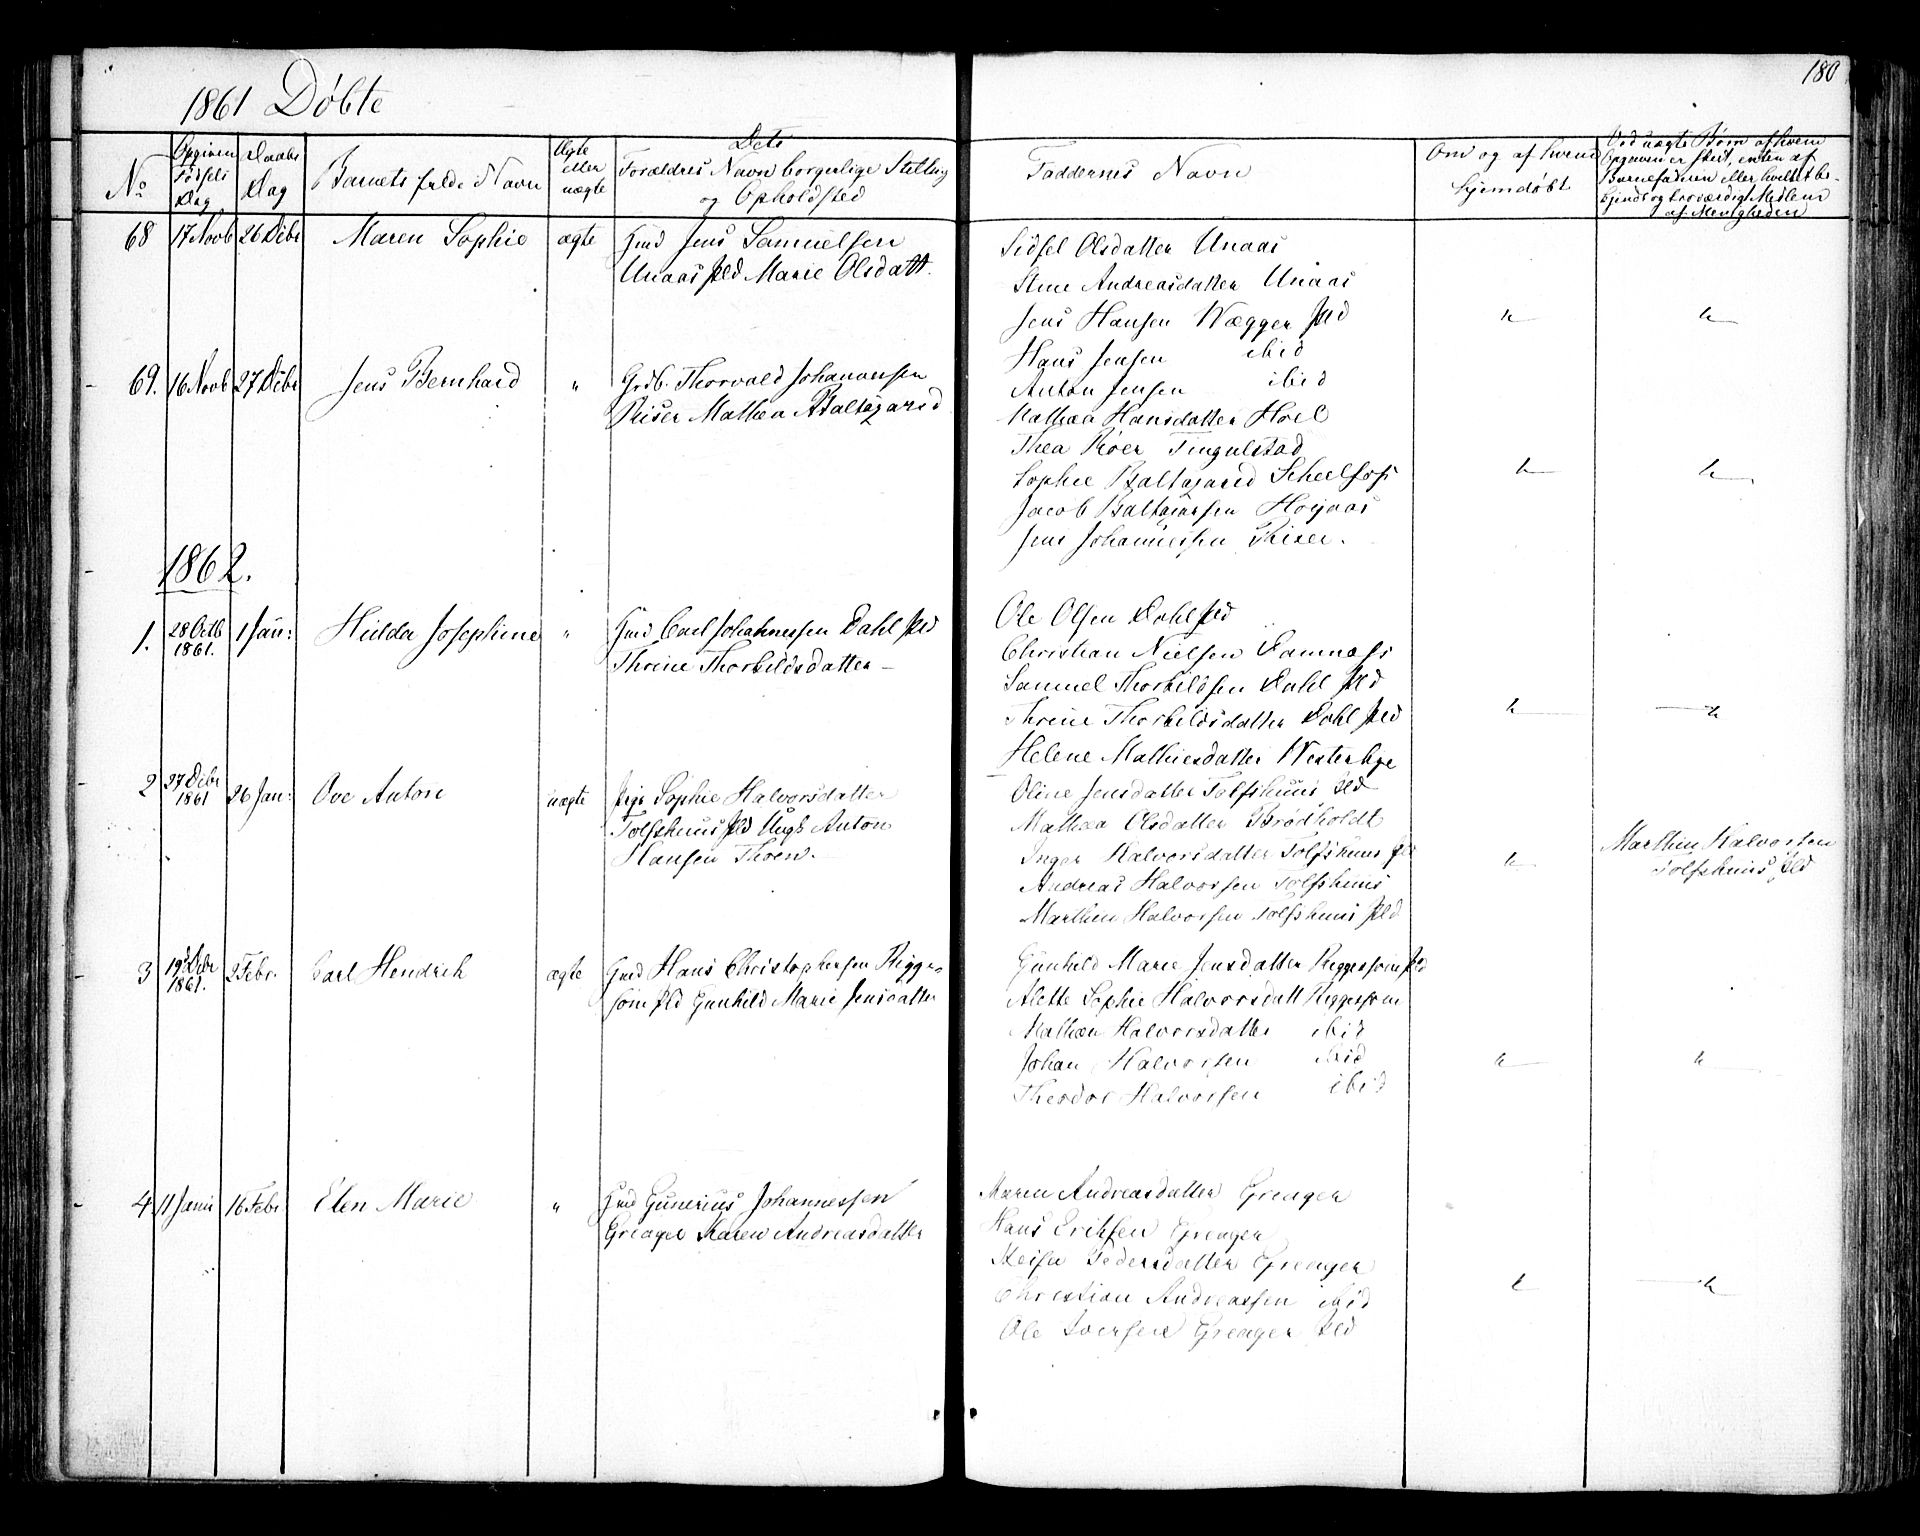 180
1861 Døbte
No
Opgiven Fødsels Dag
Daabs Dag
Barnets fulde Navn
Ægte eller uægte
Dets
Forældres Navn borgerlige Stilling
og Opholdsted
Faddernes Navn
Om og af hvem
hjemdøbt
Ved uægte Børn af hvem
Opgaven er skeet, enten af
Barnefaderen eller hvilket be-
kjendt og troværdigt Medlem
af Menigheden
68 17 Novb 26 Debr Maren Sophie ægte Gmd Jens Samuelsen
Unaas Eld Marie Olsdatt.
Sidsel Olsdatter Unaas
Stine Andreasdatter Unaas
Jens Hansen Wægger Eld
Hans Jensen ibid
Anton Jensen ibid
69. 16 Novb 27 Debr Jens Bernhard " Grdb. Thorvald Johannesen
Riser Mathea Baltazarsd
Mathea Hansdatter Hoel
Thea Riser Tingulstad
Sophie Baltazarsd
Jacob Baltazarsen
Jens Johannesen Riser.
1862.
1. 28 Octb 1861. 1 Jan: Hulda Josephine " Gmd Carl Johannessen Dahl Eld
Thrine Thorkildsdatter –
Ole Olsen Dahl Eld
Christian Nielsen
Samuel Thorkildsen Dahl Eld
Thrine Thorkildsdatter Dahl Eld
Helene Mathiesdatter Westerbye
2 27 Debr 1861 26 Jan: Ove Anton uægte Pige Sophie Halvorsdatter
Tolfshuus Eld Ungk Anton
Hansen Thoen.
Oline Jensdatter Tolfshuus Eld
Mathea Olsdatter Brødholdt
Inger Halvorsdatter Tolfshuus Eld
Andreas Halvorsen Tolfshuus
Marthin Halvorsen Tolfshuus Eld
Marthin Halvorsen
Tolfshuus Eld
3 19 Debr 1861. 2 Febr. Carl Hendrik ægte Gmd Hans Christophersen Rigge-
som Eld Gunhild Marie Jensdatter
Gunhild Marie Jensdatter Riggesom Eld
Alette Sophie Halvorsdatt Riggesom
Mathea Halvorsdatter ibid
Johan Halvorsen ibid
Theodor Halvorsen ibid
4 11 Janu 16 Febr Elen Marie " Gmd Gunerius Johannessen
Greager Karen Andreasdatter
Maren Andreasdatter Greager
Hans Eriksen Greager
Pedersdatter Greager
Christian Andreassen ibid
Ole Iversen Greager Eld